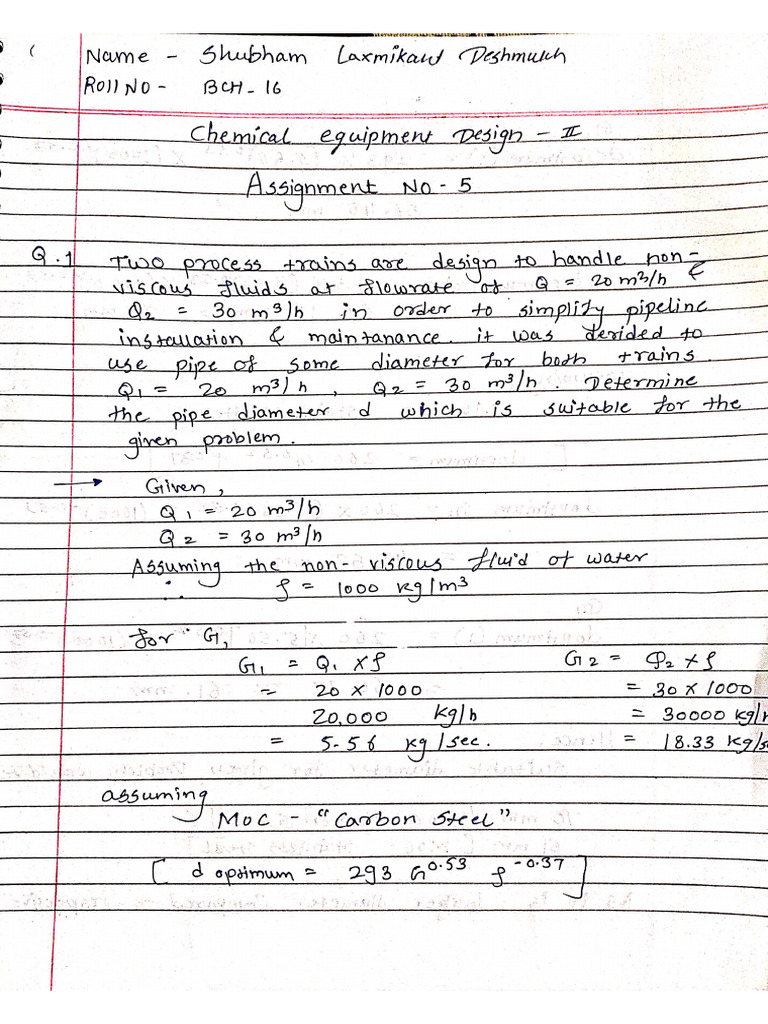 Name - Shubham Laxmikant Deshmukh
Roll No - BCH-16
Chemical equipment Design - II
Assignment No - 5
Q.1 Two process trains are design to handle non-
viscous fluids at flowrate of Q = 20 m³/h &
Q2 = 30 m³/h in order to simplify pipeline
installation & maintanance. it was derided to
use pipe of some diameter for both trains.
Q1 = 20 m³/h , Q2 = 30 m³/h. Determine
the pipe diameter d which is suitable for the
given problem.
→ Given,
Q1 = 20 m³/h
Q2 = 30 m³/h
Assuming the non-viscous fluid of water
∴ ρ = 1000 kg/m³
for G1
G1 = Q1 × ρ G2 = Q2 × ρ
= 20 × 1000 = 30 × 1000
20,000 kg/h = 30000 kg/h
= 5.56 kg/sec. = 18.33 kg/s
assuming
MOC - "Carbon Steel"
[ d optimum = 293 G^0.53 ρ^-0.37 ]